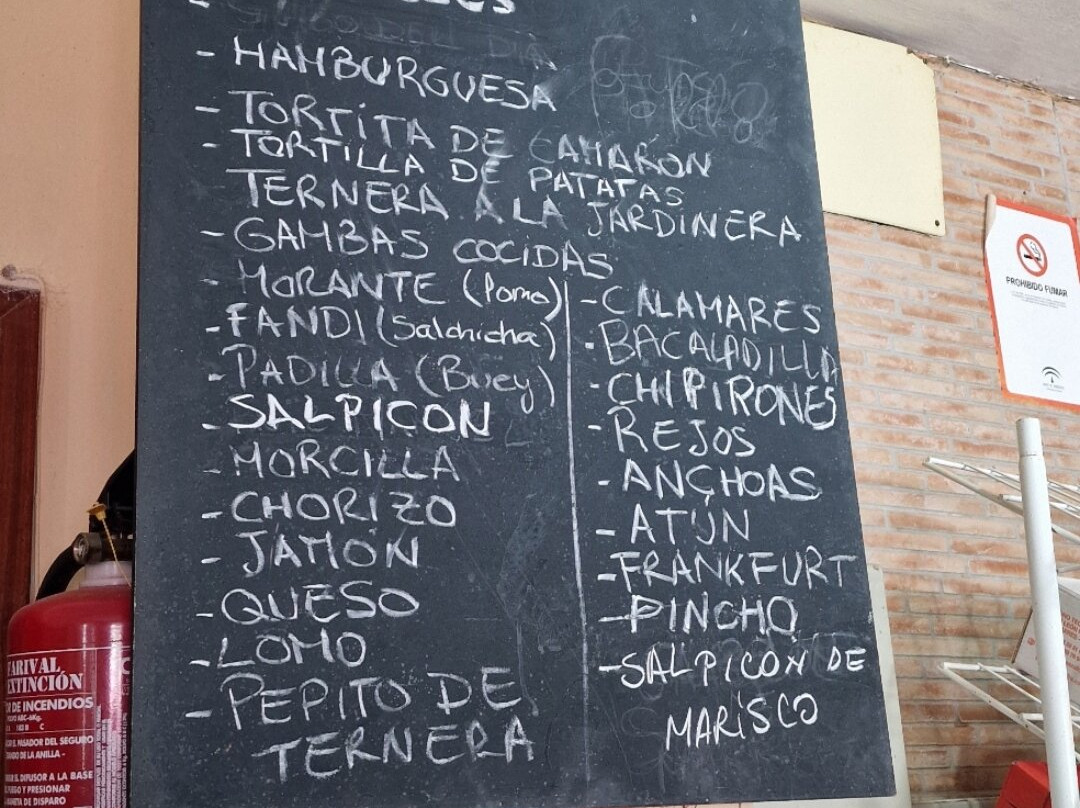 - HAMBURGUESA
- TORTITA DE CAMARON
- TORTILLA DE PATATAS
TERNERA A LA JARDINERA
- GAMBAS COCIDAS
- MORANTE (Lomo)
- FANDI (Salchicha)
- PADILLA (Buey)
- SALPICON
- MORCILLA
- CHORIZO
- JAMÓN
- QUESO
- LOMO
- PEPITO DE
TERNERA
- CALAMARES
- BACALADILLA
- CHIPIRONES
- REJOS
- ANCHOAS
- ATÚN
- FRANKFURT
- PINCHO
- SALPICON DE
MARISCO
PROHIBIDO FUMAR
PARIVAL
EXTINCIÓN
OR DE INCENDIOS
POLVO ABC-6Kg.
EL PASADOR DEL SEGURO
DE LA ANILLA -
EL DIFUSOR A LA BASE
FUEGO Y PRESIONAR
DE DISPARO